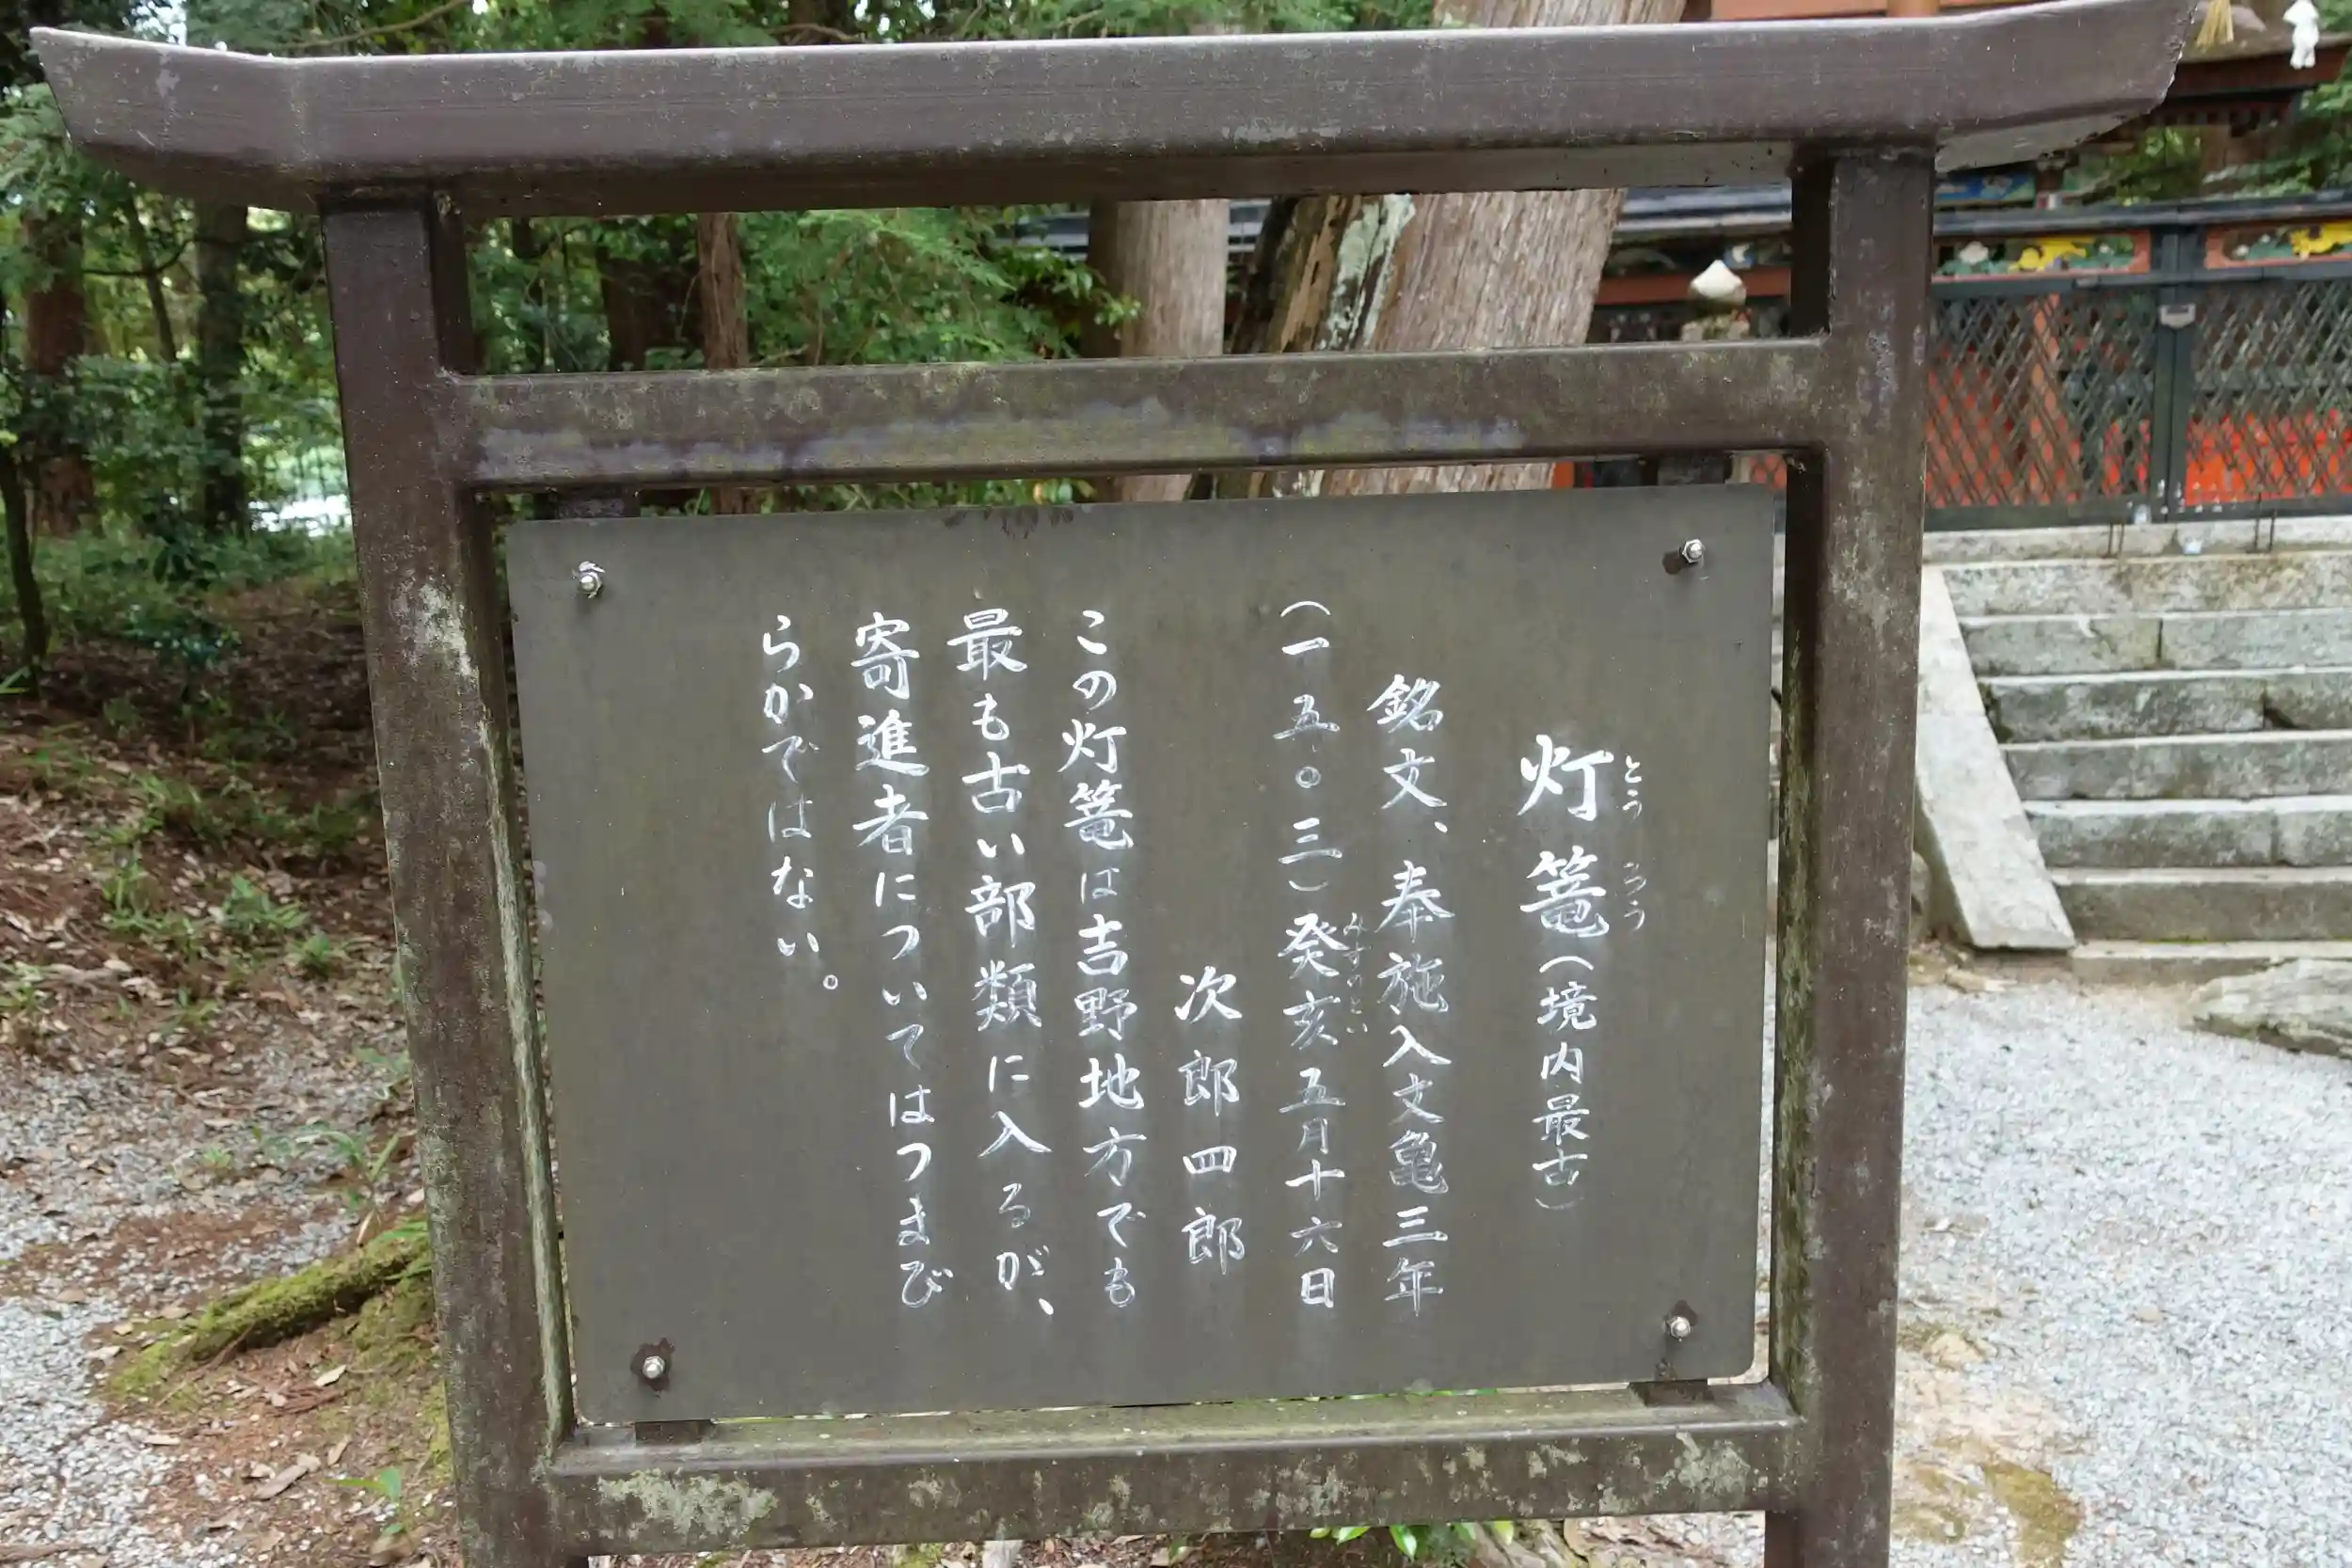 灯篭（境内最古）
とうろう
銘文、奉施入文亀三年
（一五〇三）癸亥五月十六日
みずのとい
次郎四郎
この灯篭は吉野地方でも
最も古い部類に入るが、
寄進者についてはつまび
らかではない。